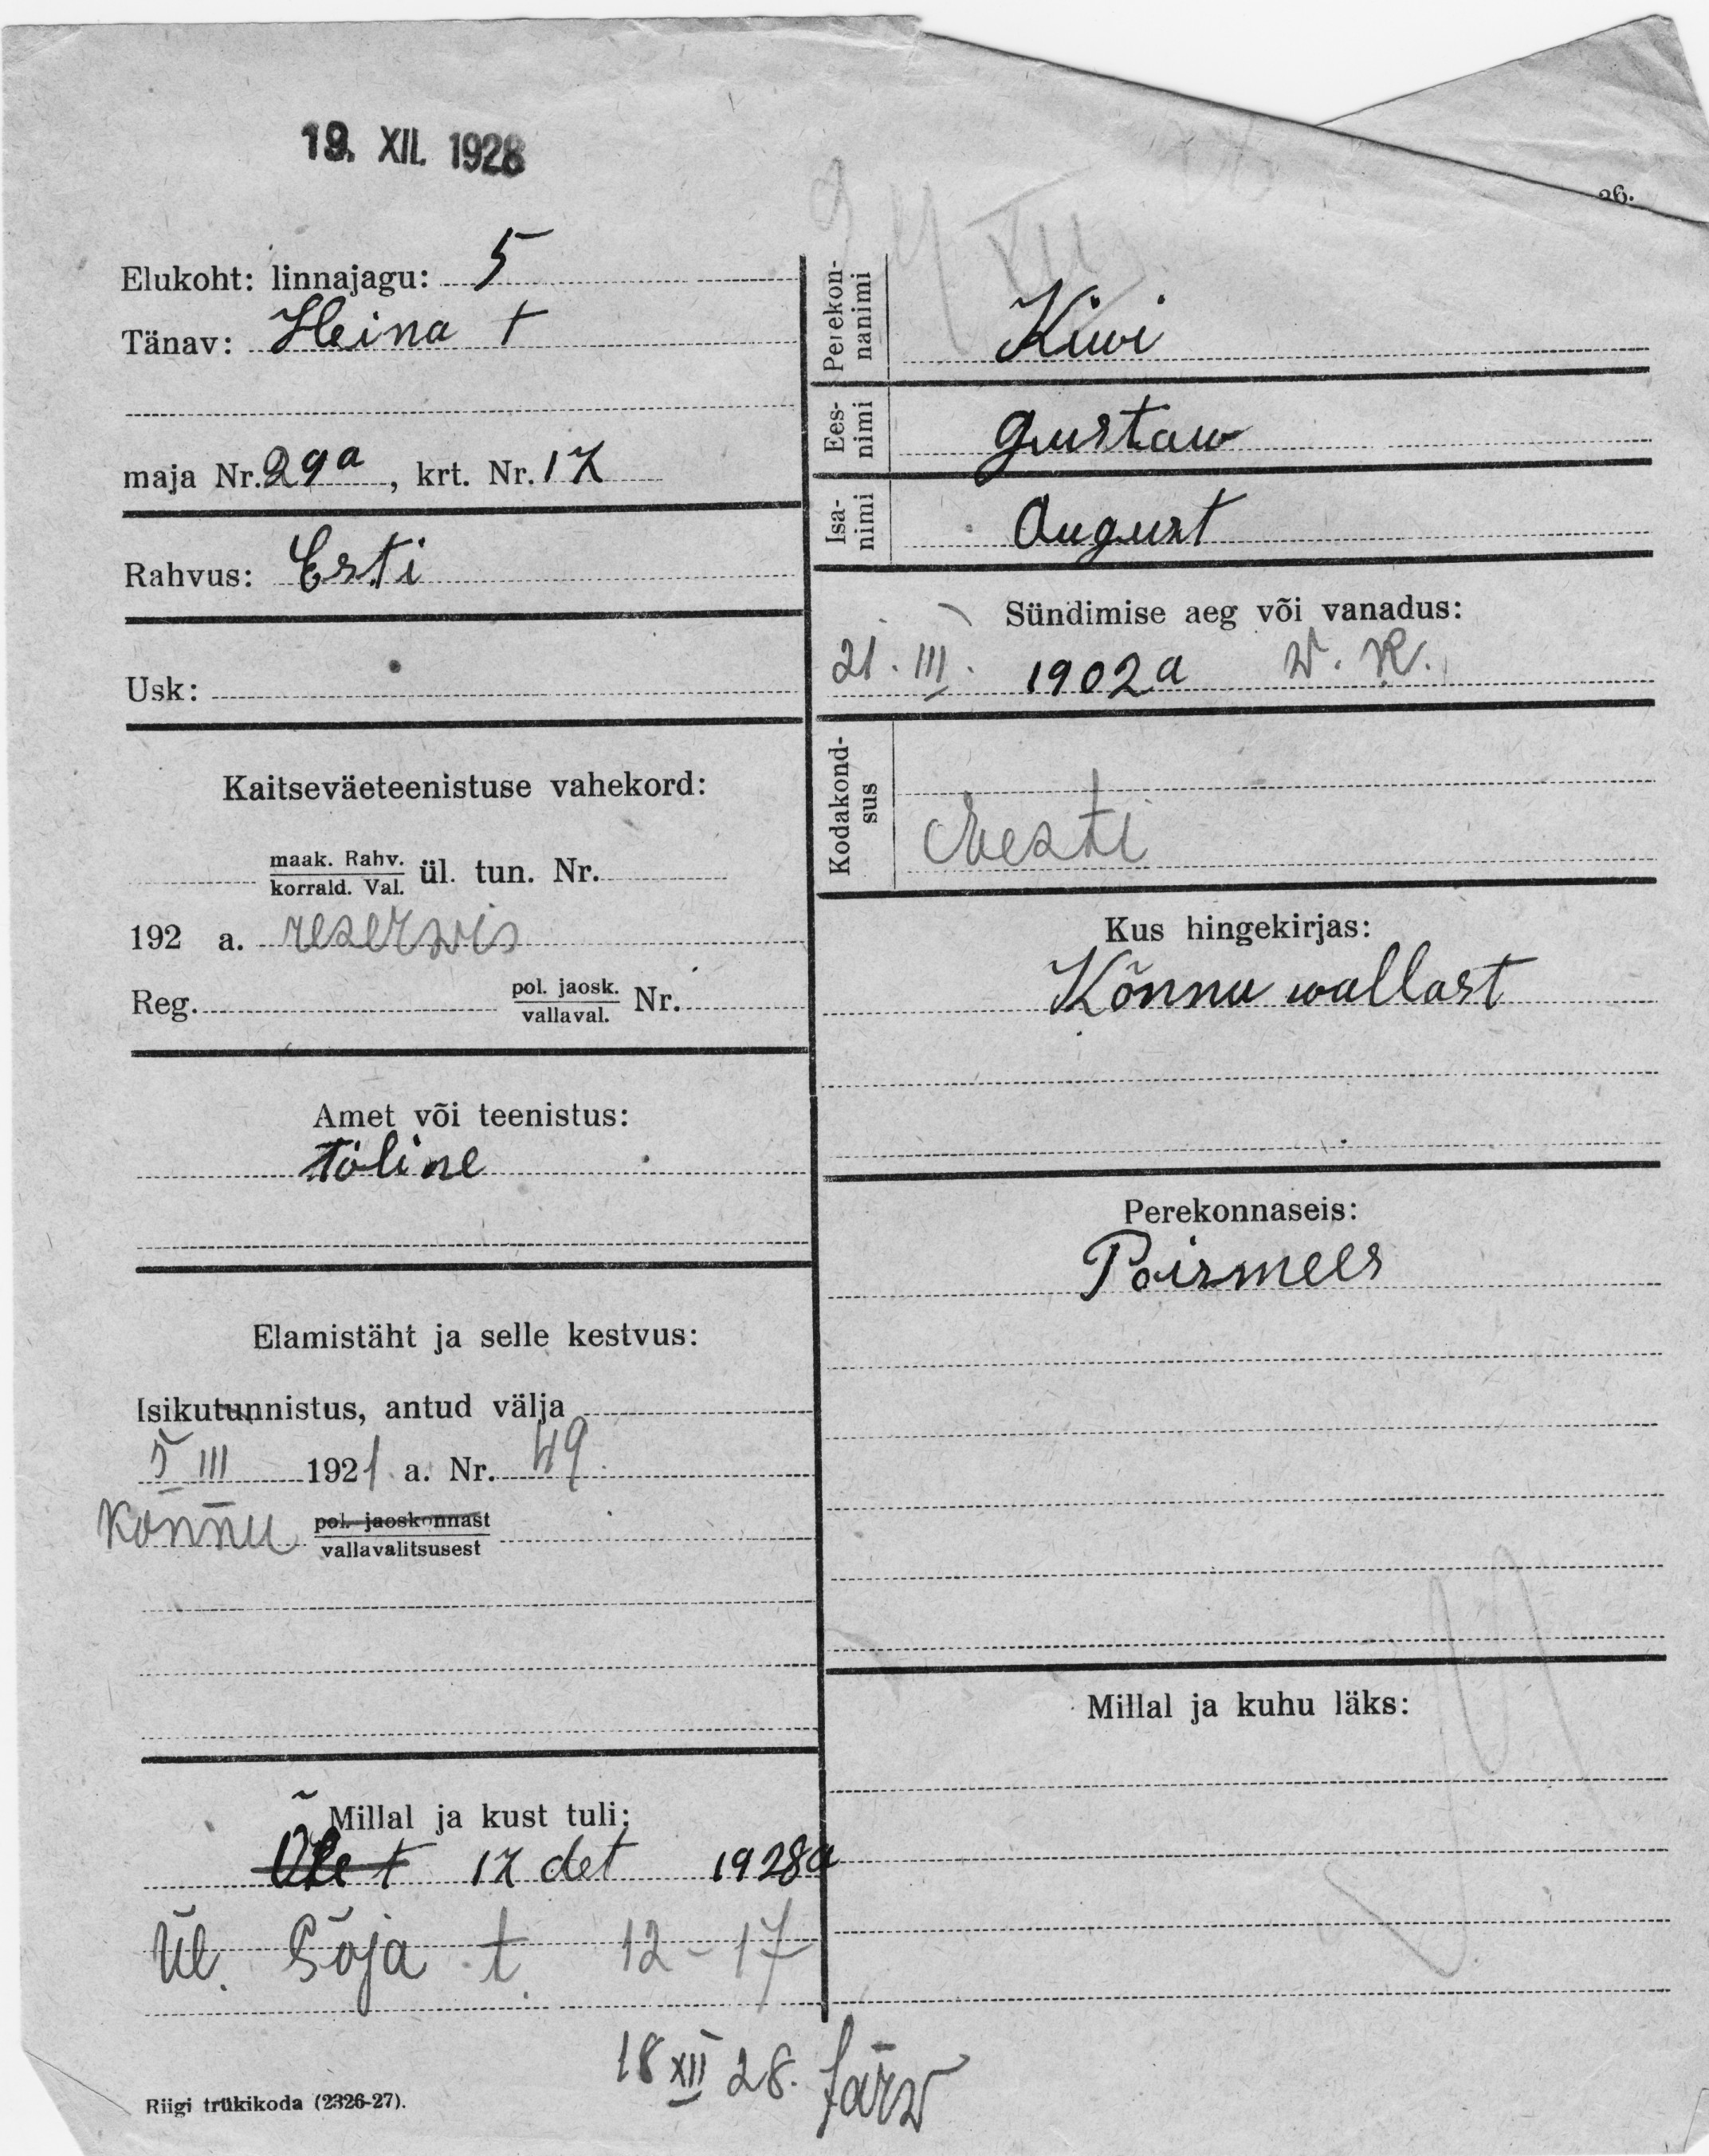 19. XII. 1928
24 XII
26.
Elukoht: linnajagu: 5
Tänav: Heina t
maja Nr. 29a, krt. Nr. 17
Rahvus: Esti
Usk:
Kaitseväeteenistuse vahekord:
maak. Rahv. korrald. Val. ül. tun. Nr.
192 a. reservis
Reg. pol. jaosk. vallaval. Nr.
Amet või teenistus:
Tööline
Elamistäht ja selle kestvus:
Isikutunnistus, antud välja
5 III 1921 a. Nr. 49
Kõnnu pol. jaoskonnast vallavalitsusest
Millal ja kust tuli:
17 det 1928a
Ül. Sõja t. 12-17
18 XII 28. Järw
Riigi trükikoda (2326-27).
Perekonnanimi
Kiwi
Eesnimi
Gustaw
Isanimi
August
Sündimise aeg või vanadus:
21. III. 1902a W. K.
Kodakondsus
Eesti
Kus hingekirjas:
Kõnnu wallast
Perekonnaseis:
Poismees
Millal ja kuhu läks: